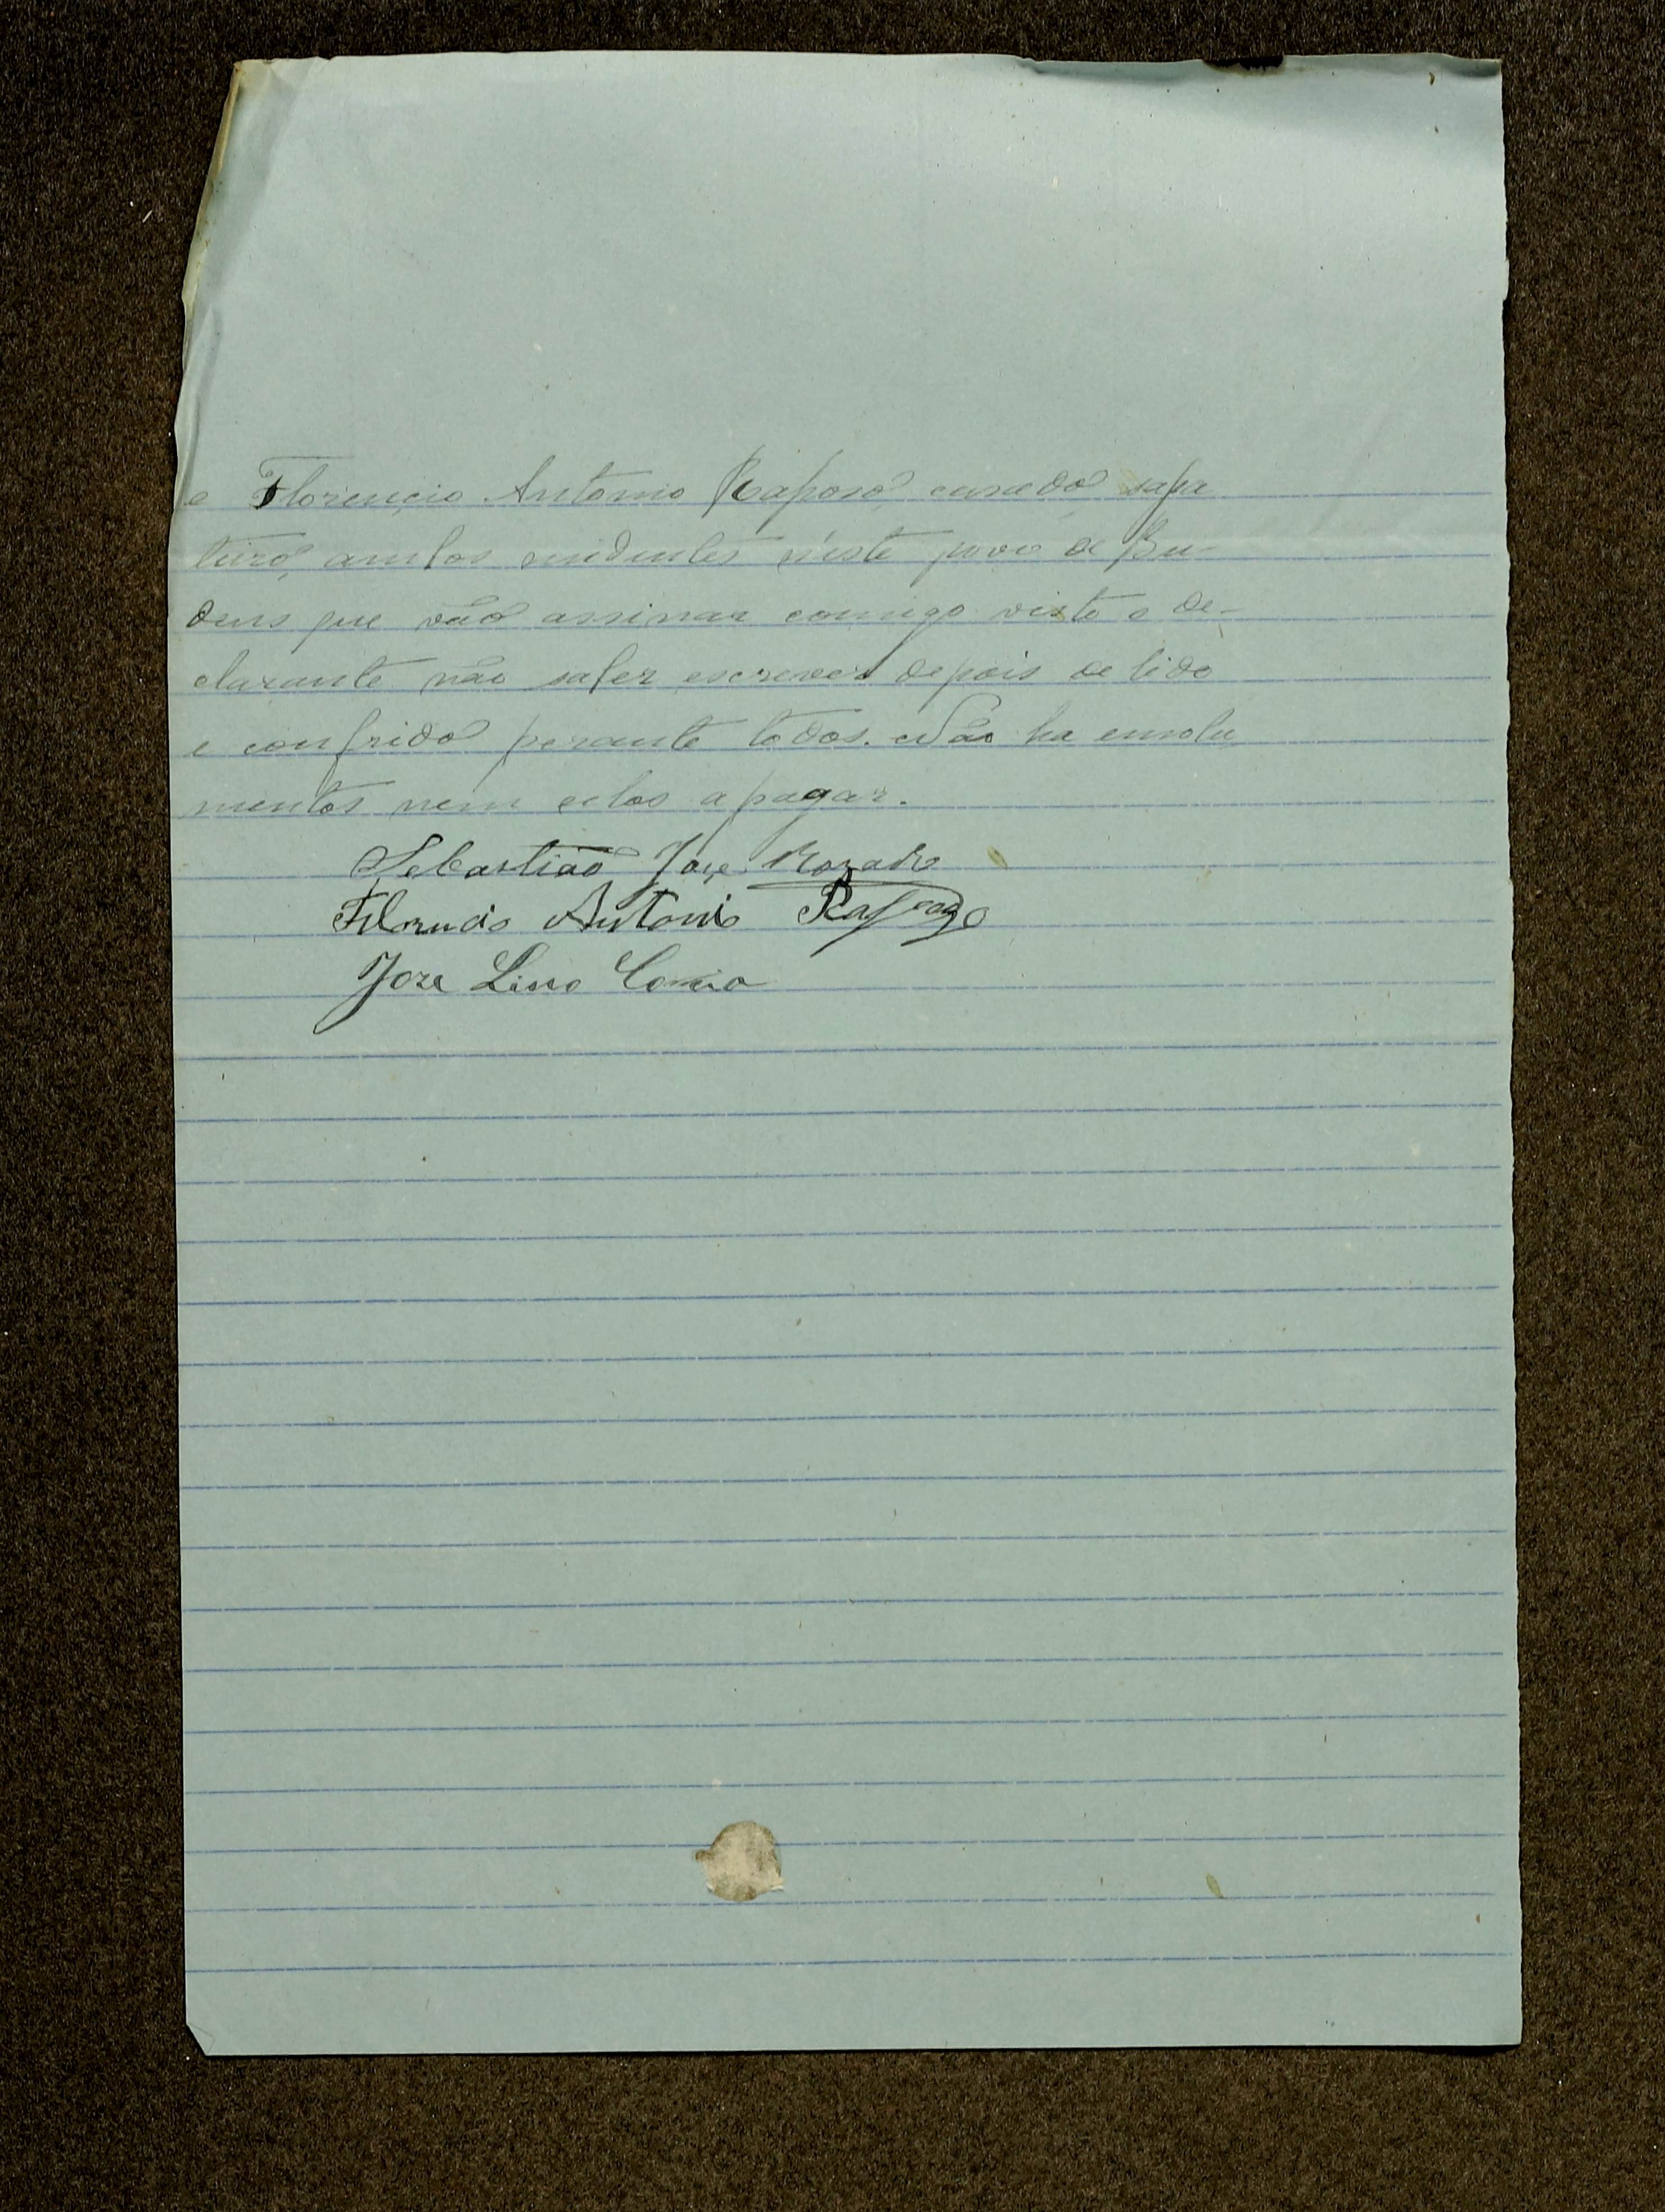 e Florencio Antonio Raposo, casado, sapa
teiro, ambos residentes n'este povo de Bu-
dens que vão assinar comigo visto o de-
clarante não saber escrever depois de lido
e confrido perante todos. Não ha emolu
mentos nem selos a pagar.
Sebastião Jose Rozado
Florencio Antonio Raposo
Jose Lino Correia